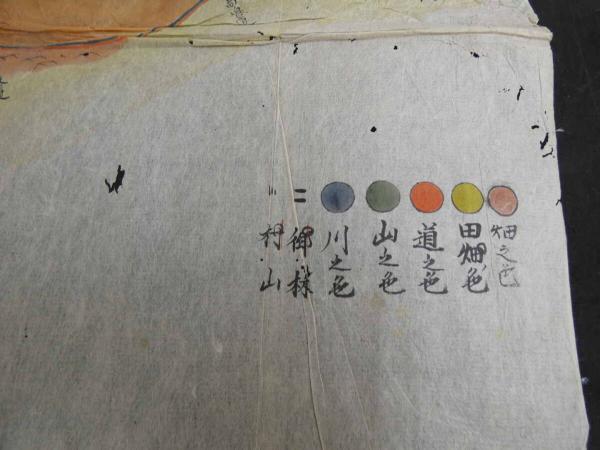 畑之色
田畑色
道之色
山之色
川之色
御林
村山